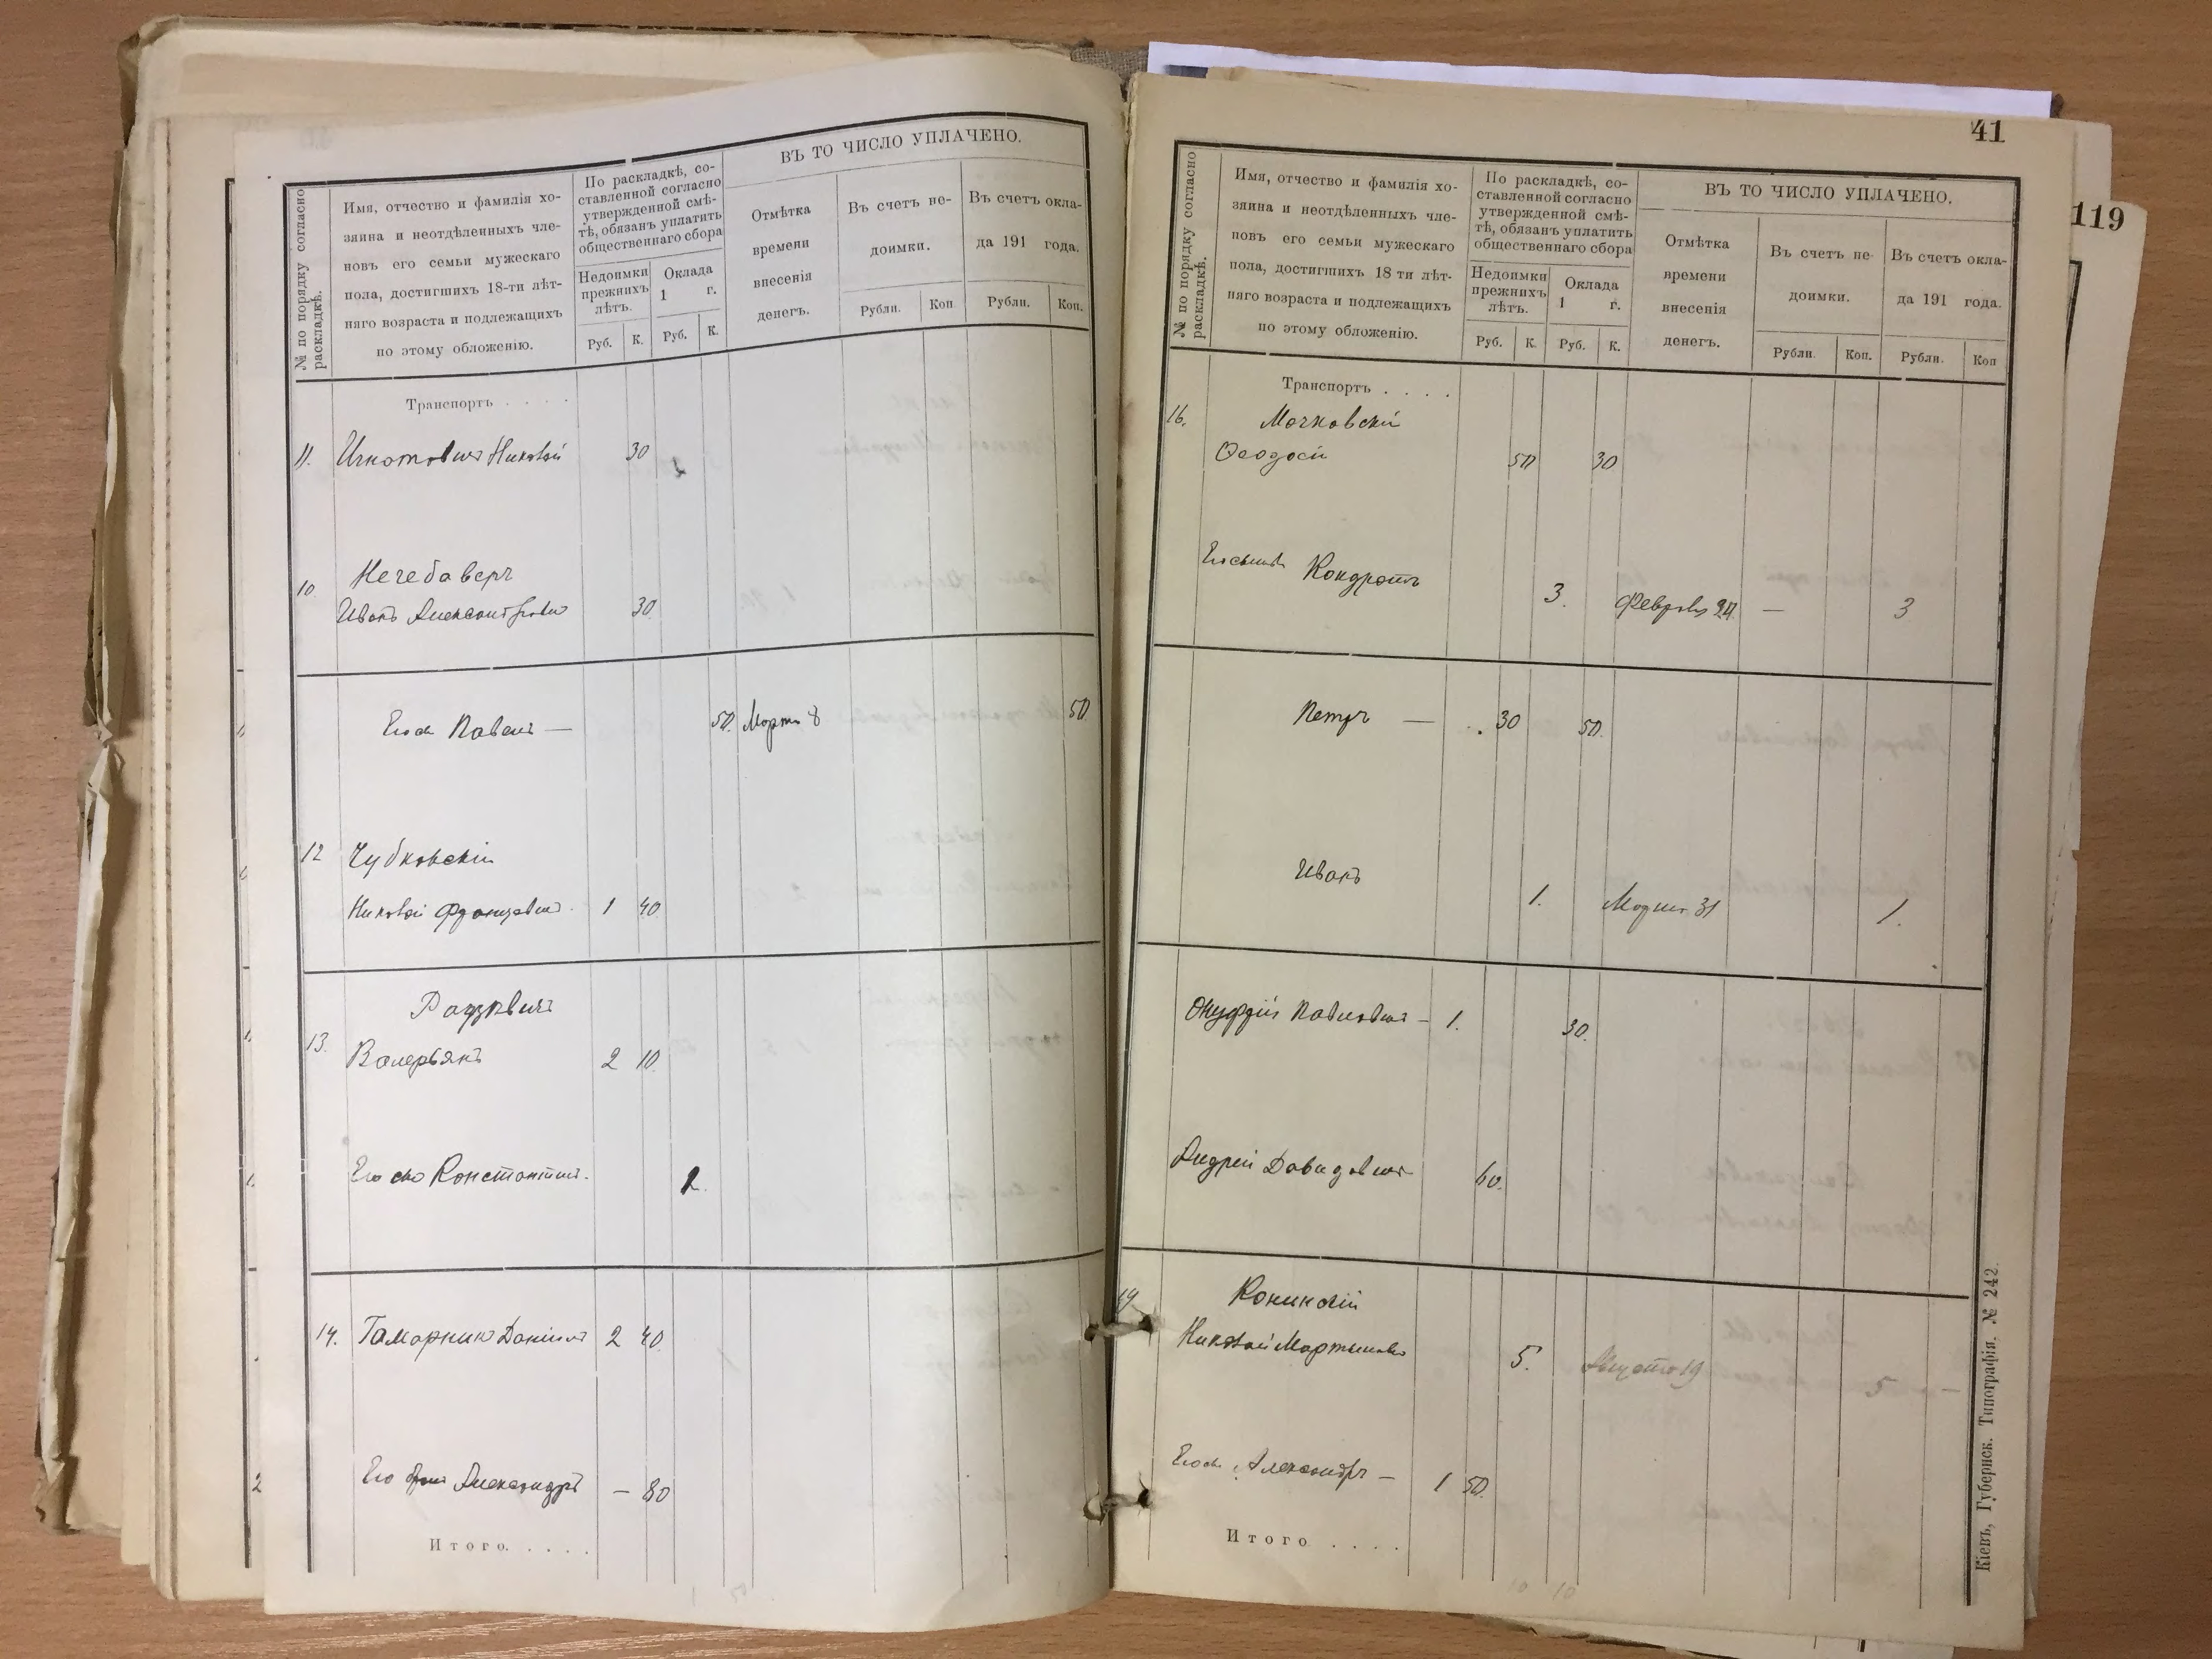 № по порядку согласно
раскладкѣ.
Имя, отчество и фамилія хо-
зяина и неотдѣленныхъ чле-
новъ его семьи мужескаго
пола, достигшихъ 18-ти лѣт-
няго возраста и подлежащихъ
по этому обложенію.
По раскладкѣ, со-
ставленной согласно
утвержденной смѣ-
тѣ, обязанъ уплатить
общественнаго сбора
Недоимки
прежнихъ
лѣтъ.
Оклада
1 г.
Руб. К. Руб. К.
ВЪ ТО ЧИСЛО УПЛАЧЕНО.
Отмѣтка
времени
внесенія
денегъ.
Въ счетъ не-
доимки.
Въ счетъ окла-
да 191 года.
Рубли. Коп Рубли. Коп.
Транспортъ . . . .
11. Николай 30
10 Нечебаверъ
Иванъ 30
Павелъ — 50. Марта 8 50
12 Чубковскій
Николай 1 40
13. Валерьянъ 2 10
Его Константинъ. 2.
14. 2 40
Его Александръ — 80
Итого. . . . .
41
119
№ по порядку согласно
раскладкѣ.
Имя, отчество и фамилія хо-
зяина и неотдѣленныхъ чле-
новъ его семьи мужескаго
пола, достигшихъ 18 ти лѣт-
няго возраста и подлежащихъ
по этому обложенію.
По раскладкѣ, со-
ставленной согласно
утвержденной смѣ-
тѣ, обязанъ уплатить
общественнаго сбора
Недоимки
прежнихъ
лѣтъ.
Оклада
1 г.
Руб. К. Руб. К.
ВЪ ТО ЧИСЛО УПЛАЧЕНО.
Отмѣтка
времени
внесенія
денегъ.
Въ счетъ не-
доимки.
Въ счетъ окла-
да 191 года.
Рубли. Коп. Рубли. Коп
Транспортъ . . . .
16. Мочковскій
Феодосій 50 30
Кондратъ
3. — 3
Петръ — 30 50.
Иванъ
1. Марта 31 1.
Онуфрій Павловичъ — 1. 30.
Андрей Давидовичъ 60.
Николай 5. Августа 19 5 —
Александръ — 1 50.
Итого . . . .
Кіевъ, Губернск. Типографія. № 242.